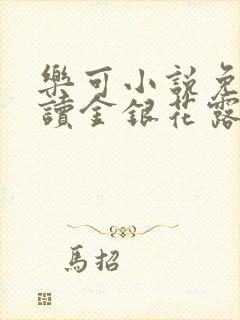 樂可小說免
讀金銀花露
馬招